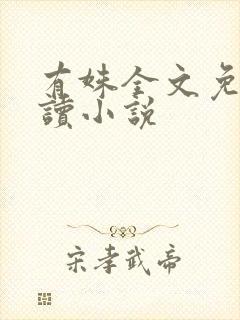 有妹全文免
讀小說
宋孝武帝